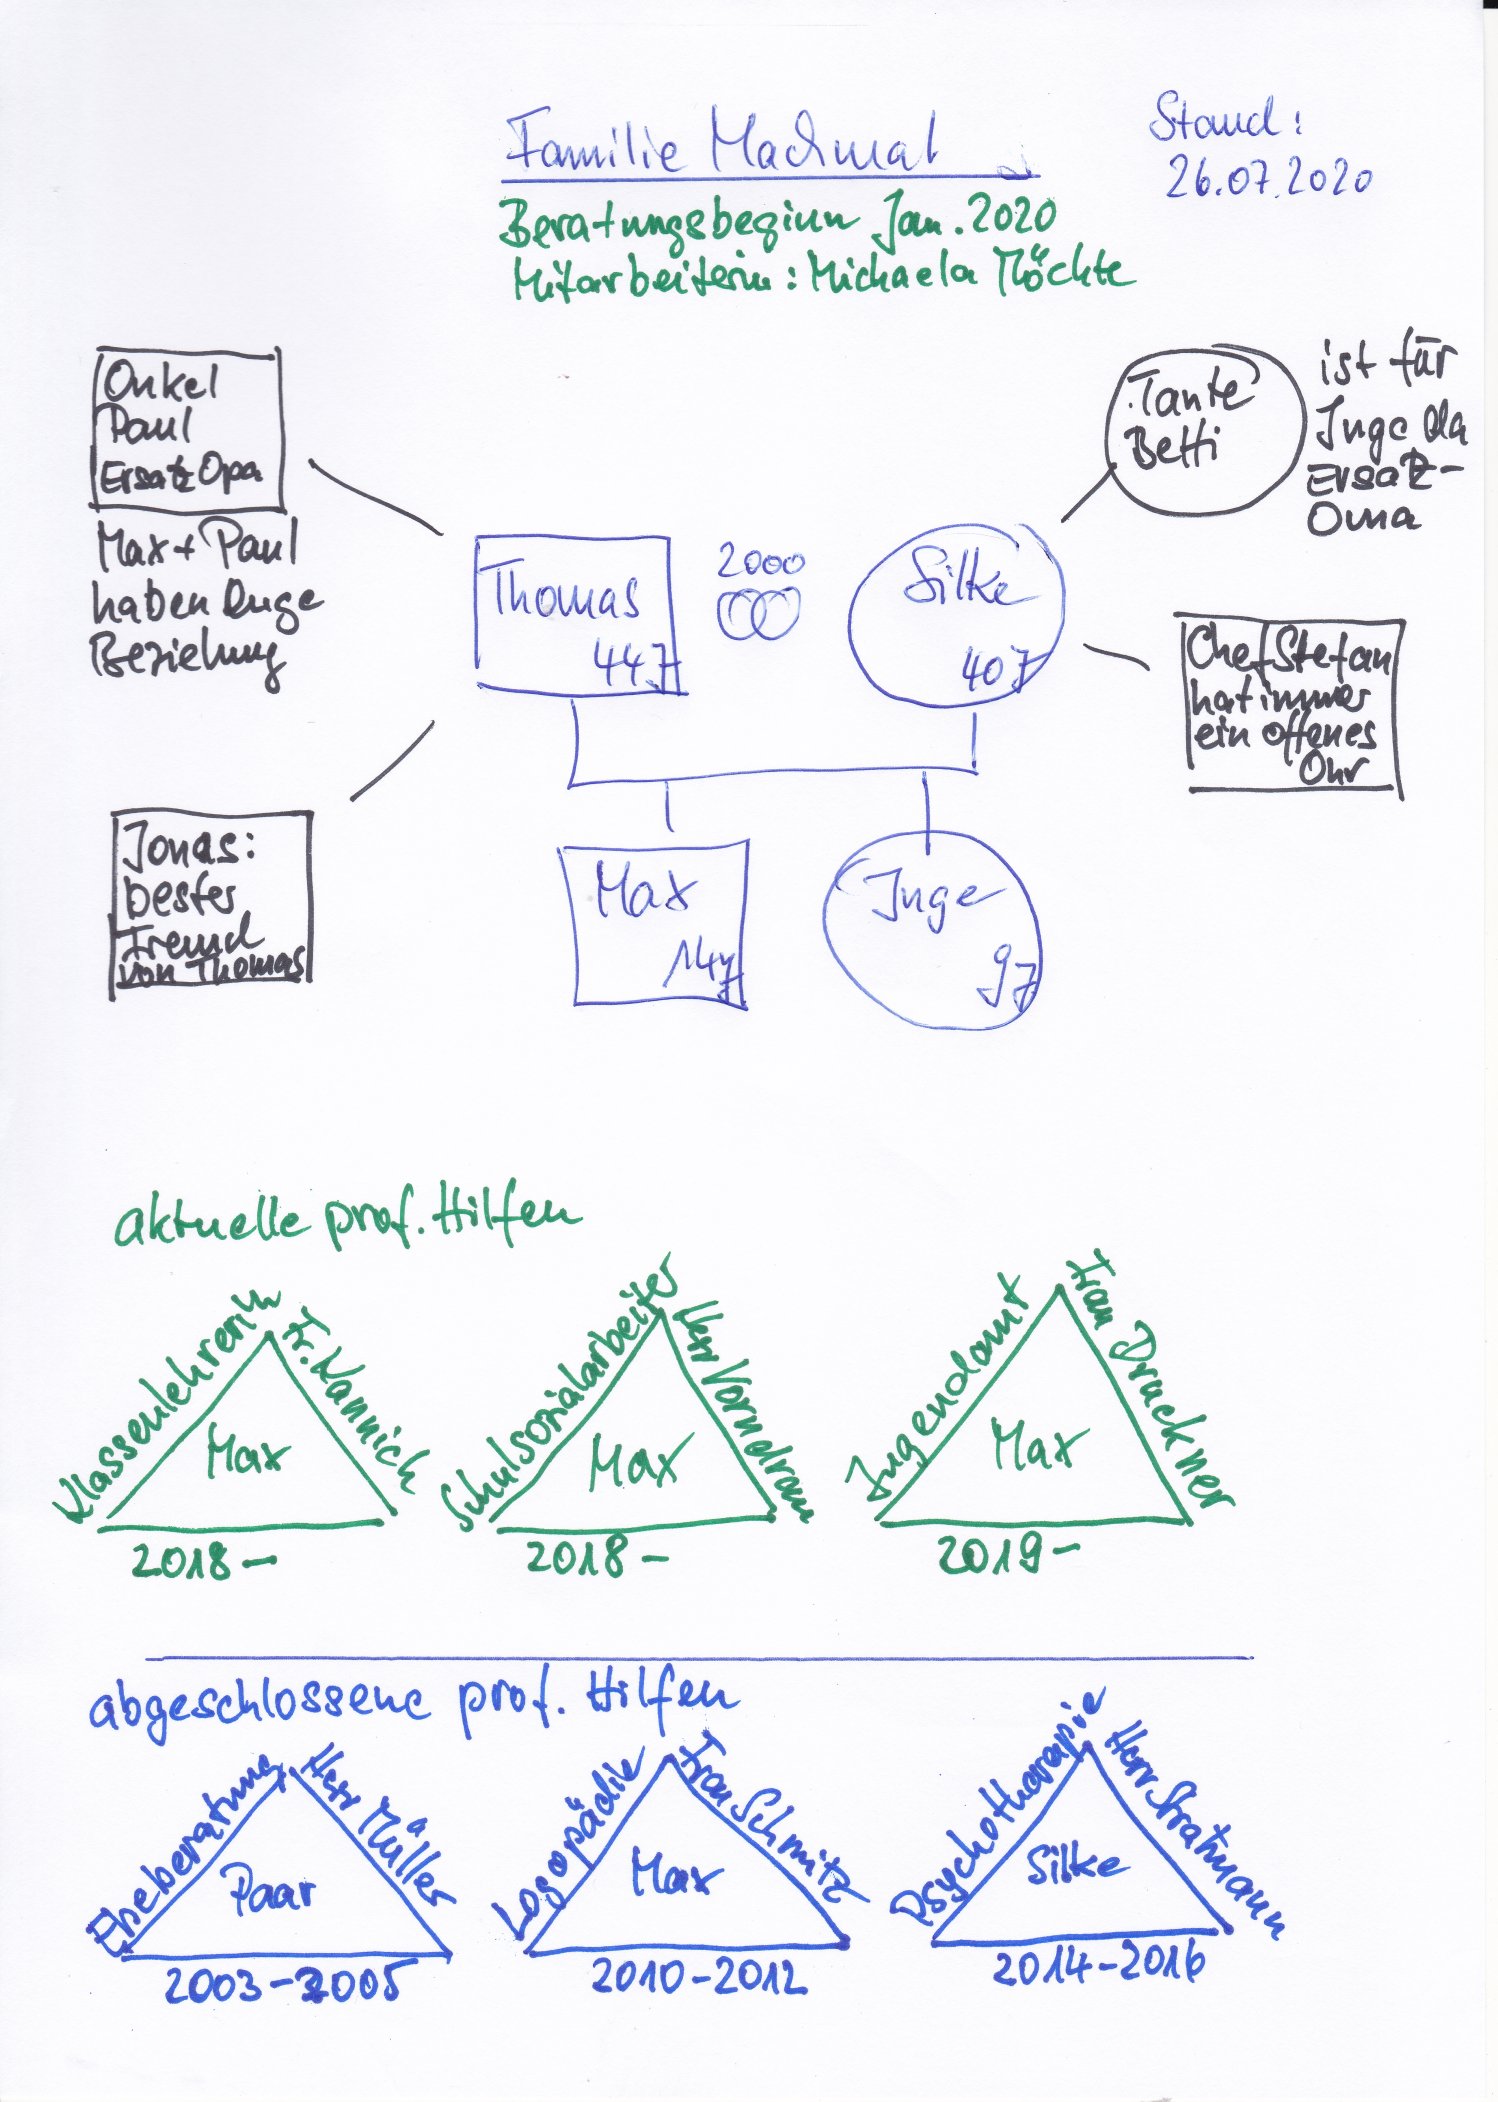 Familie Machmal
Stand:
26.07.2020
Beratungsbeginn Jan. 2020
Mitarbeiterin: Michaela Möchte
Onkel
Paul
Ersatz Opa
Max + Paul
haben enge
Beziehung
Tante
Betti
ist für
Inge da
Ersatz-
Oma
Thomas
44 J
2000
Silke
40 J
Chef Stefan
hat immer
ein offenes
Ohr
Jonas:
bester
Freund
von Thomas
Max
14 J
Inge
9 J
aktuelle prof. Hilfen
Klassenlehrerin
Fr. Kannich
Max
2018 -
Schulsozialarbeiter
Herr Vorndran
Max
2018 -
Jugendamt
Frau Druckner
Max
2019 -
abgeschlossene prof. Hilfen
Eheberatung
Herr Müller
Paar
2003 - 2005
Logopädie
Frau Schmitz
Max
2010 - 2012
Psychotherapie
Herr Stratmann
Silke
2014 - 2016